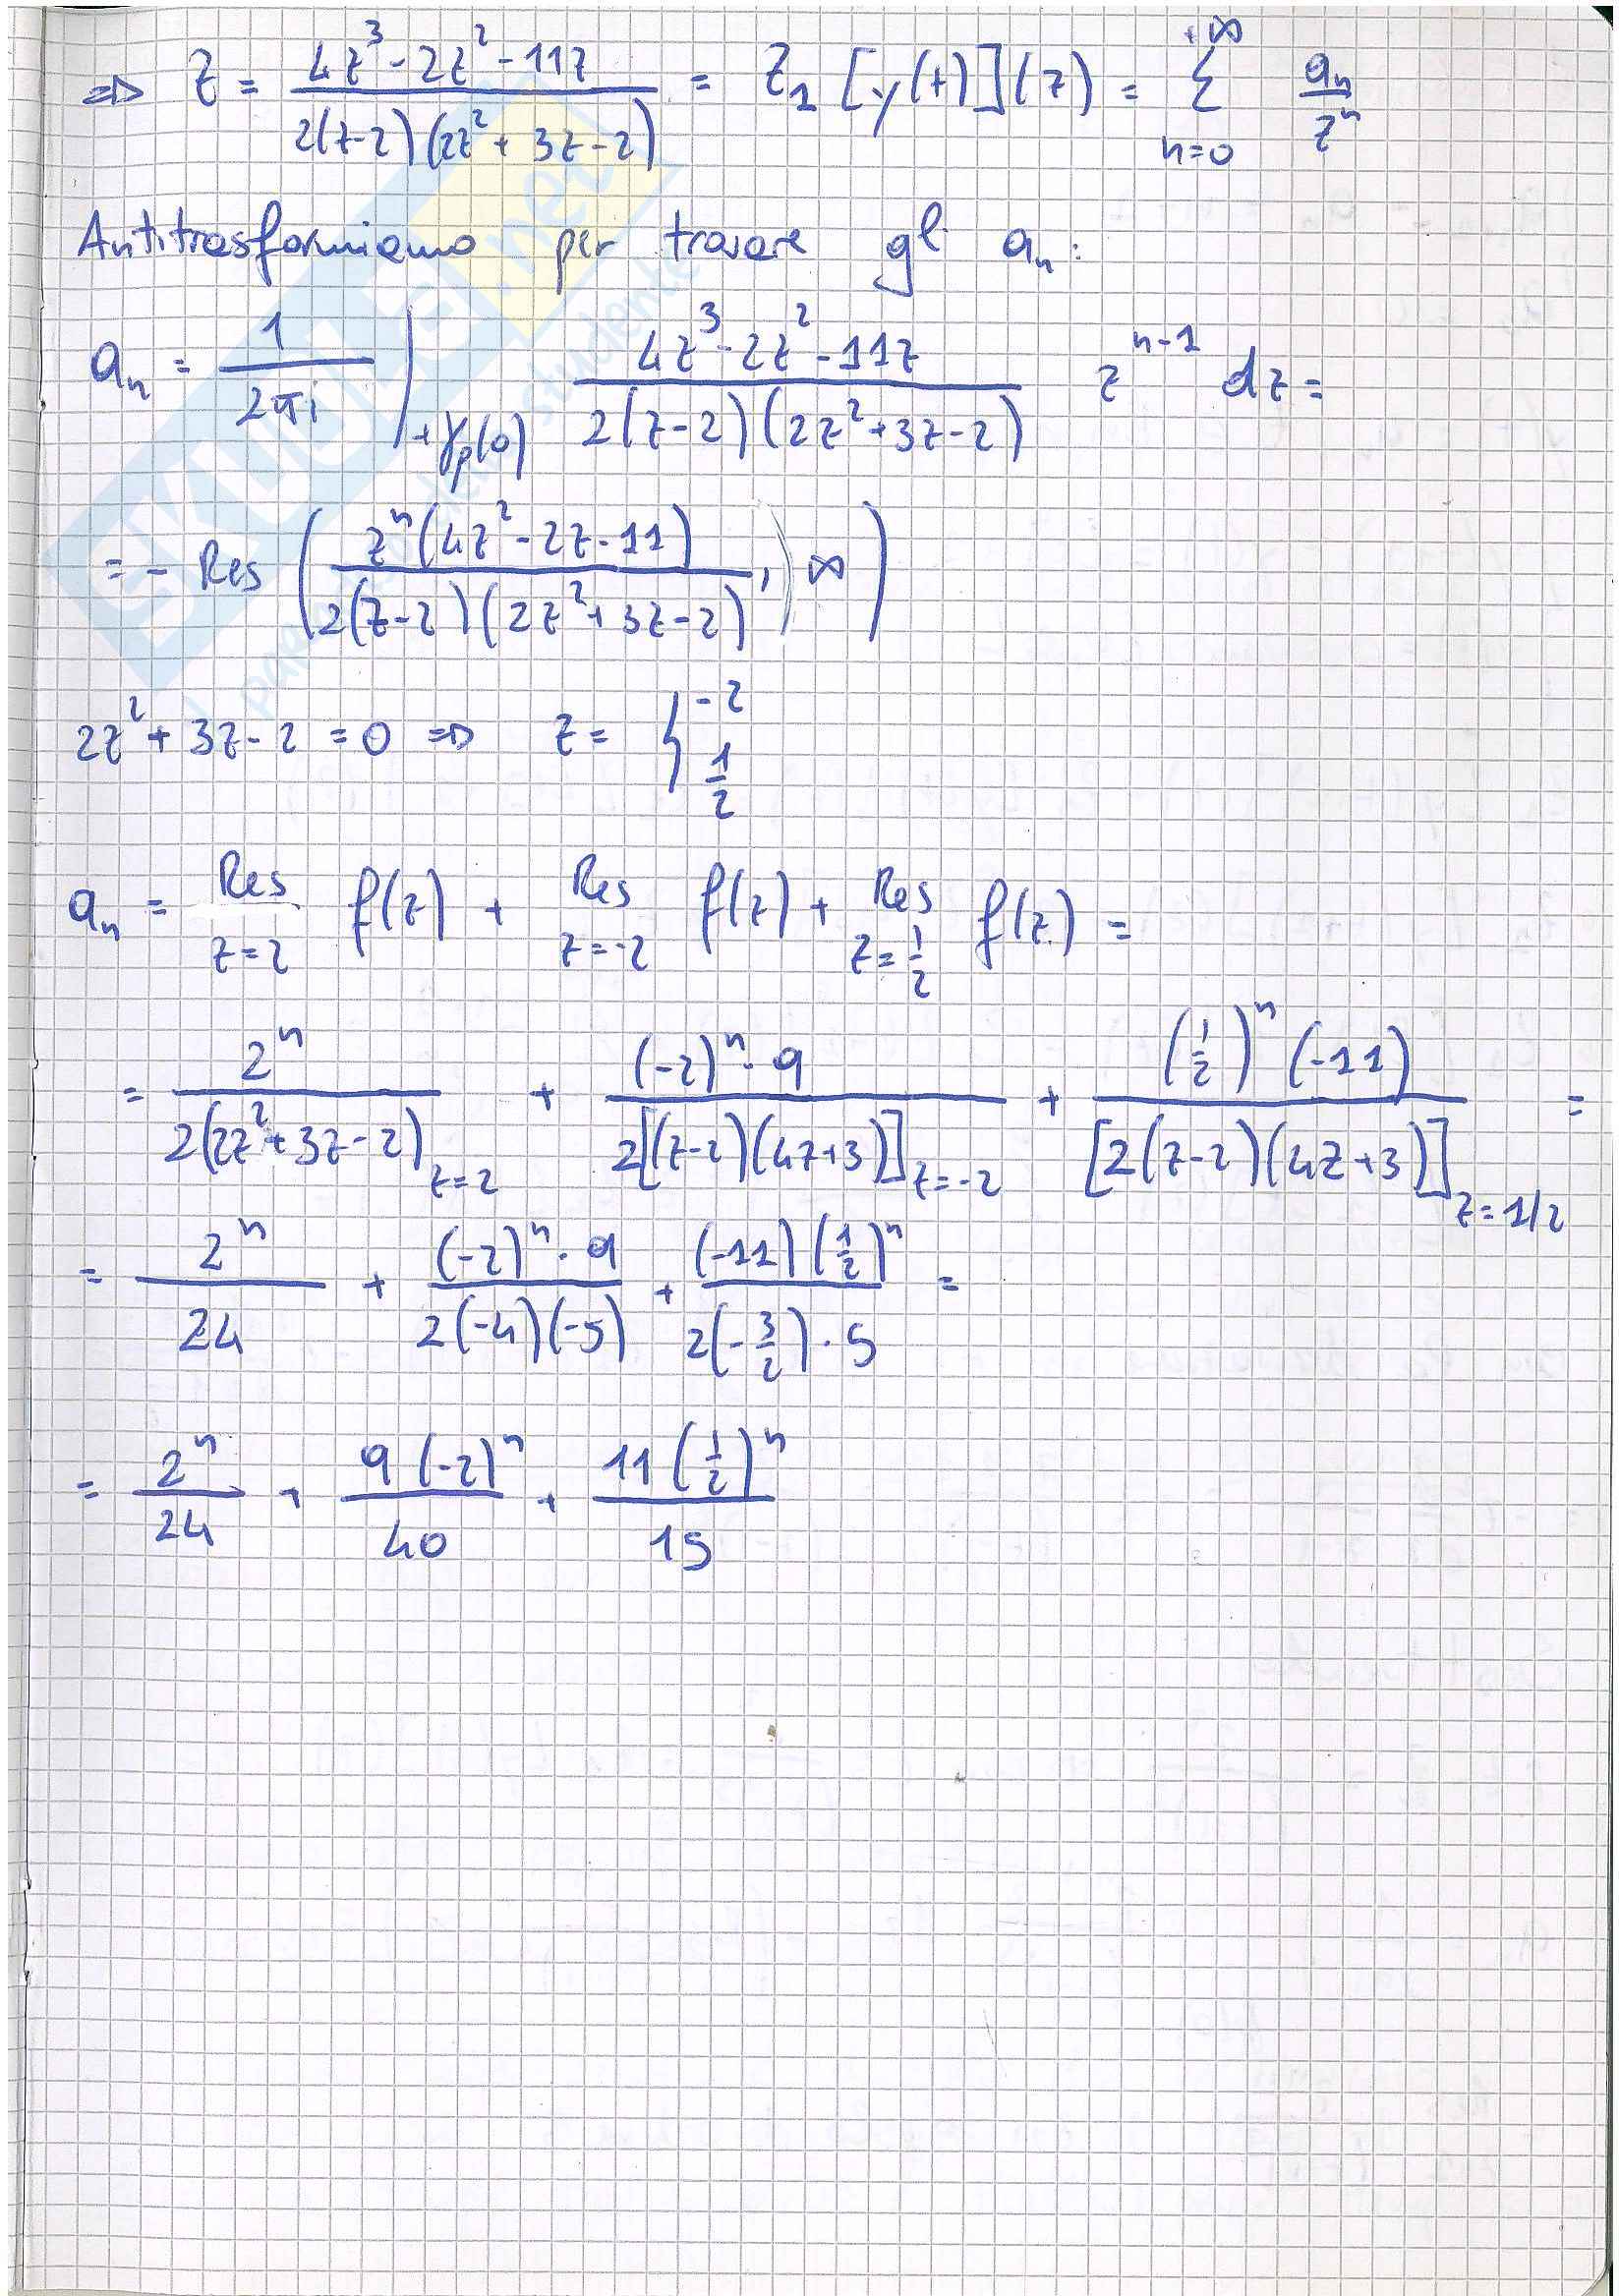 ⇒ Z = (4z³ - 2z² - 11z) / (2(z-2)(2z² + 3z - 2)) = Z₁ [y(t)](z) = Σ_{n=0}^{+∞} aₙ / zⁿ
Antitrasformiamo per trovare gli aₙ:
aₙ = 1/(2πi) ∫_{+γρ(0)} (4z³ - 2z² - 11z) / (2(z-2)(2z² + 3z - 2)) z^{n-1} dz =
= - Res ( zⁿ(4z² - 2z - 11) / (2(z-2)(2z² + 3z - 2)) , ∞ )
2z² + 3z - 2 = 0 ⇒ z = { -2 ; 1/2
aₙ = Res_{z=2} f(z) + Res_{z=-2} f(z) + Res_{z=1/2} f(z) =
= 2ⁿ / 2(2z² + 3z - 2)_{z=2} + (-2)ⁿ · 9 / 2[(z-2)(4z+3)]_{z=-2} + (1/2)ⁿ (-11) / [2(z-2)(4z+3)]_{z=1/2} =
= 2ⁿ / 24 + (-2)ⁿ · 9 / 2(-4)(-5) + (-11)(1/2)ⁿ / 2(-3/2) · 5 =
= 2ⁿ / 24 + 9(-2)ⁿ / 40 + 11(1/2)ⁿ / 15
SKUOLA.net